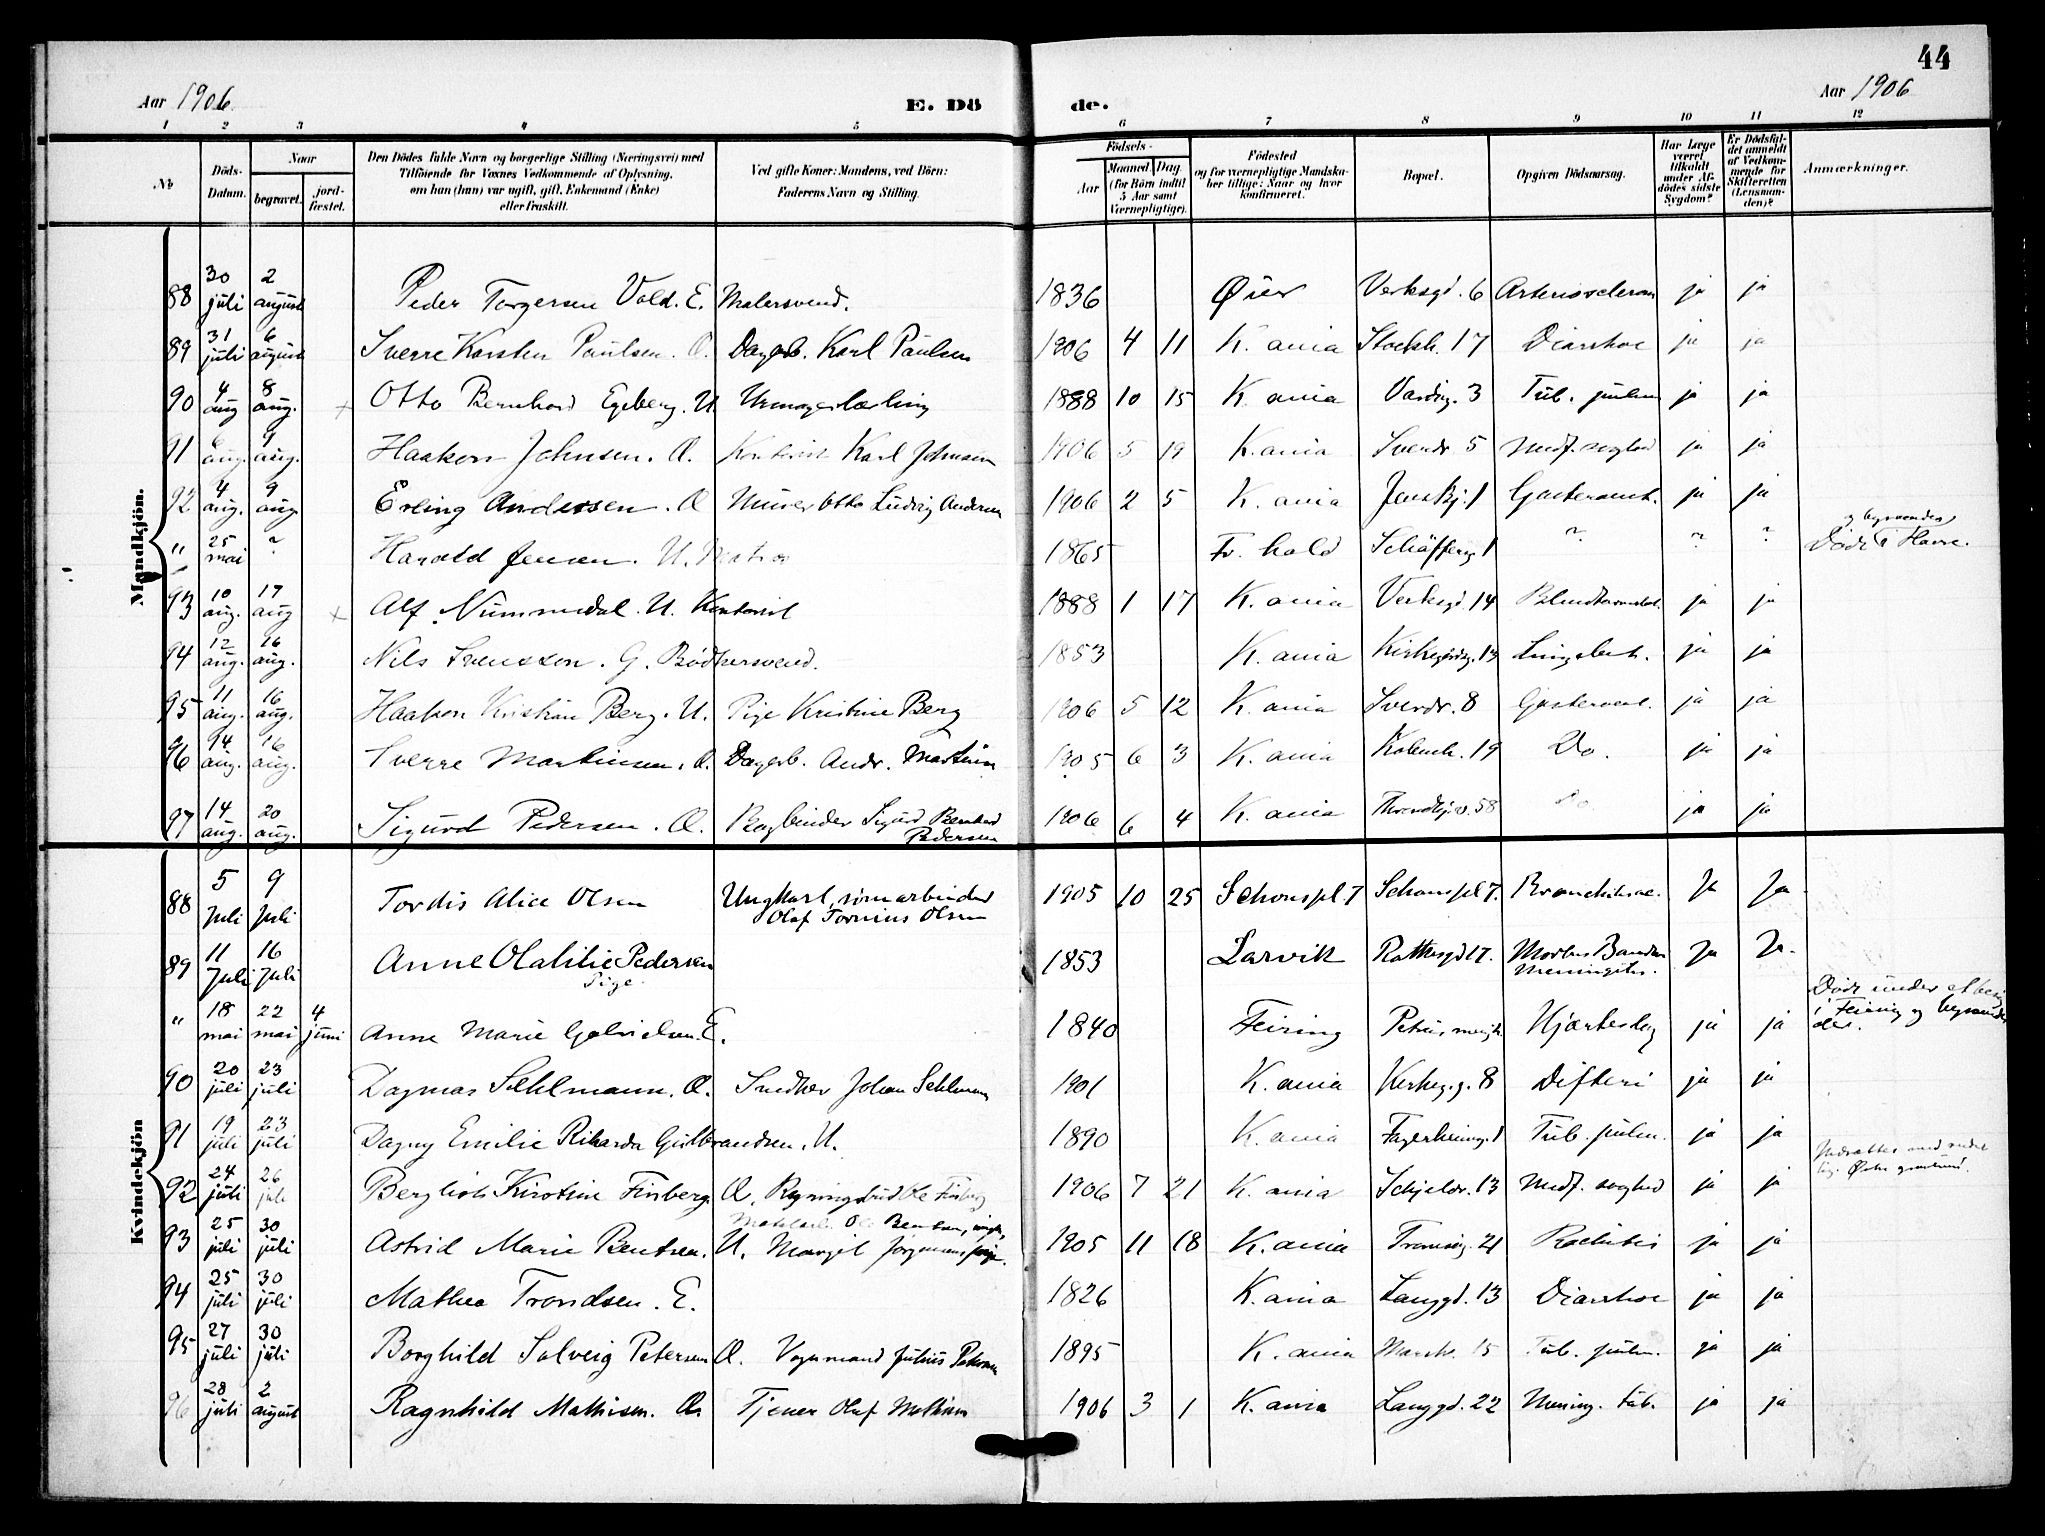 44
Aar 1906. E. Dö de. Aar 1906
1 2 3 4 5 6 7 8 9 10 11 12
№
Döds-Datum.
Naar
begravet.
jord-fæstet.
Den Dödes fulde Navn og borgerlige Stilling (Næringsvei) med
Tilföiende for Voxnes Vedkommende af Oplysning,
om han (hun) var ugift, gift, Enkemand (Enke)
eller fraskilt.
Ved gifte Koner: Mandens, ved Börn:
Faderens Navn og Stilling.
Födsels-
Aar
Maaned. Dag.
(for Börn indtil
5 Aar samt
Værnepligtige).
Födested
og for værnepligtige Mandska-
ber tillige: Naar og hvor
konfirmeret.
Bopæl.
Opgiven Dödsaarsag.
Har Læge
været
tilkaldt
under Af-
dödes sidste
Sygdom?
Er Dödsfal-
det anmeldt
af Vedkom-
mende for
Skifteretten
(Lensman-
den)?
Anmærkninger.
Mandkjön.
88 30 juli 2 august Peder Torgersen Vold. E. Malersvend. 1836 Öier Verksgd. 6 ja ja
89 31 juli 6 august Sverre Karsten Paulsen. Æ. Dagarb. Karl Paulsen 1906 4 11 K.ania Stockh. 17 Diarrhoe ja ja
90 4 aug 8 aug. × Otto Bernhard Egeberg. U Urmagerlærling 1888 10 15 K.ania 3 Tub. pulm ja ja
91 6 aug. 9 aug. Haakon Johnsen. Æ. Kontorist Karl Johnsen 1906 5 19 K.ania Sverdr 5 Medf. svaghed ja ja
92 4 aug. 9 aug. Erling Andersen. Æ Murer Otto Ludvig Andersen 1906 2 5 K.ania Jensbj. 1 ja ja
" 25 mai ? Harald Jensen. U. Matros 1865 Fr. hald Schäfferg 1 ? ? ? Död og begravendes i Havre.
93 10 aug. 17 aug × Alf Nummedal. U. Kontorist 1888 1 17 K.ania Verksgd. 14 ja ja
94 12 aug. 16 aug. Nils Svensson. G. Bödkersvend. 1853 K.ania Kirkegårdsg. 13 Lungebet. ja ja
95 11 aug. 16 aug. Haakon Kristian Berg. U. Pige Kristine Berg 1906 5 12 K.ania Sverdr. 8 ja ja
96 14 aug. 16 aug. Sverre Martinsen. Æ. Dagarb. Andr. Martinsen 1905 6 3 K.ania Kobenh. 19 Do. ja ja
97 14 aug. 20 aug. Sigurd Pedersen. Æ. Bogbinder Sigurd Bernhard
Pedersen 1906 6 4 K.ania Throndhj.v. 58 Do. ja ja
Kvindekjön
88 5 Juli 9 Juli Tordis Alice Olsen Ungkarl, sömarbeider
Olaf Tornius Olsen 1905 10 25 Schouspl. 7 Schouspl 7. Ja Ja
89 11 Juli 16 Juli Anne Olalilie Pedersen
Pige 1853 Larvik Rathkesgd 17. Morbus
Meningitis. Ja Ja
" 18 mai 22 mai 4 juni Anne Marie Gabrielsen. E. 1840 Feiring Petrus mengh. Hjærteslag ja ja Död under et besög
i Feiring og begravet
der.
90 20 juli 23 juli Dagmar Sehlmann. Æ. Snedker Johan Sehlmann 1901 K.ania Kirkeg.g. 8 Difteri ja ja
91 19 juli 23 juli Dagny Emilie Rikarda Gulbrandsen. U. 1890 K.ania Fagerheimg. 1 Tub. pulm. ja ja
92 24 juli 26 juli Bergliot Kirstine Finberg. Æ. Bygningsbud Ole Finberg 1906 7 21 K.ania Schjelдr. 13 Medf. svaghed ja ja
93 25 juli 30 juli Astrid Marie Bentsen. U. Bentsen, ungk,
Margit Jörgensen, pige. 1905 11 18 K.ania Tromsög. 21 Rachitis ja ja
94 25 juli 30 juli Mathea Trondsen. E. 1826 K.ania Langgd. 13 Diarrhoe ja ja
95 27 juli 30 juli Borghild Solveig Petersen Æ. Vognmand Julius Petersen 1895 K.ania Marstr. 15 Tub. pulm. ja ja
96 28 juli 2 august Ragnhild Mathisen. Æ. Tjener Olaf Mathisen 1906 3 1 K.ania Langgd. 22 Mening. tub. ja ja